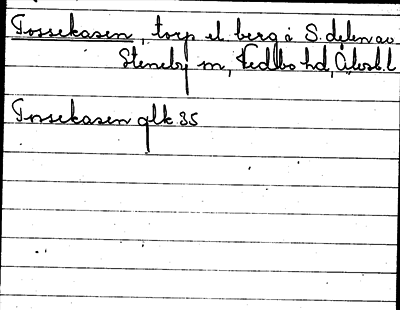 Tossekasen, torp el. berg å S. delen av
Steneby sn, Vedbo hd, Älvsb. l
Tossekasen glk 35